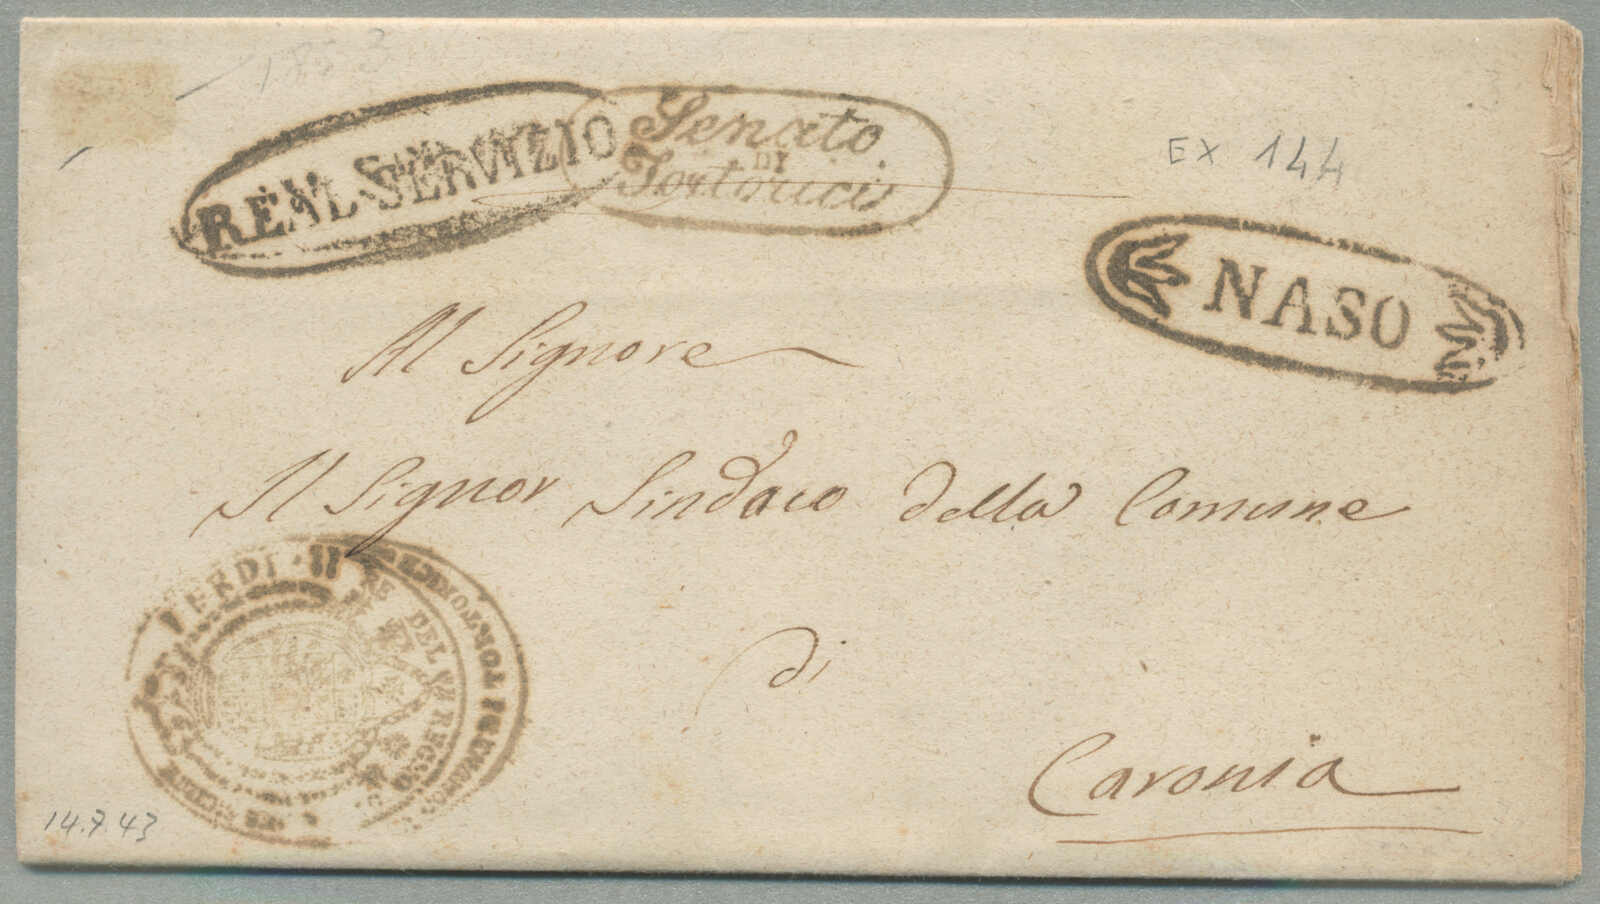 1853
REAL SERVIZIO
Senato
DI
Tortorici
EX 144
NASO
Al Signore
Il Signor Sindaco della Comune
di
Caronia
FERDI · II RE DEL REGNO
DI TORTORICI
14.7.43